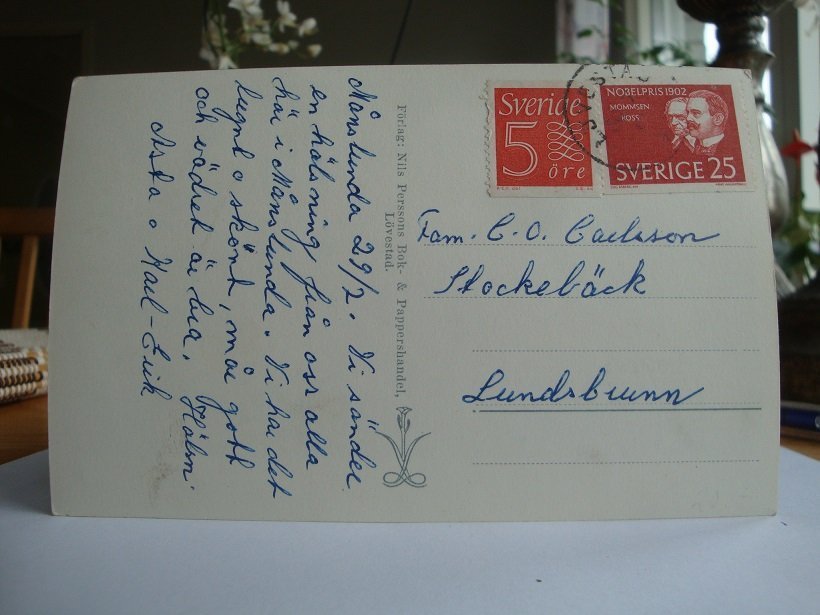 Månslunda 29/2. Vi sänder
en hälsning från oss alla
här i Månslunda. Vi har det
lugnt o skönt, mår gott
och vädret är bra. Hälsn.
Asta o Karl-Erik
Förlag: Nils Perssons Bok- & Pappershandel,
Lövestad.
Sverige
5
öre
NOBELPRIS 1902
MOMMSEN
ROSS
SVERIGE 25
Fam. C. O. Carlsson
Stockebäck
Lundsbrunn